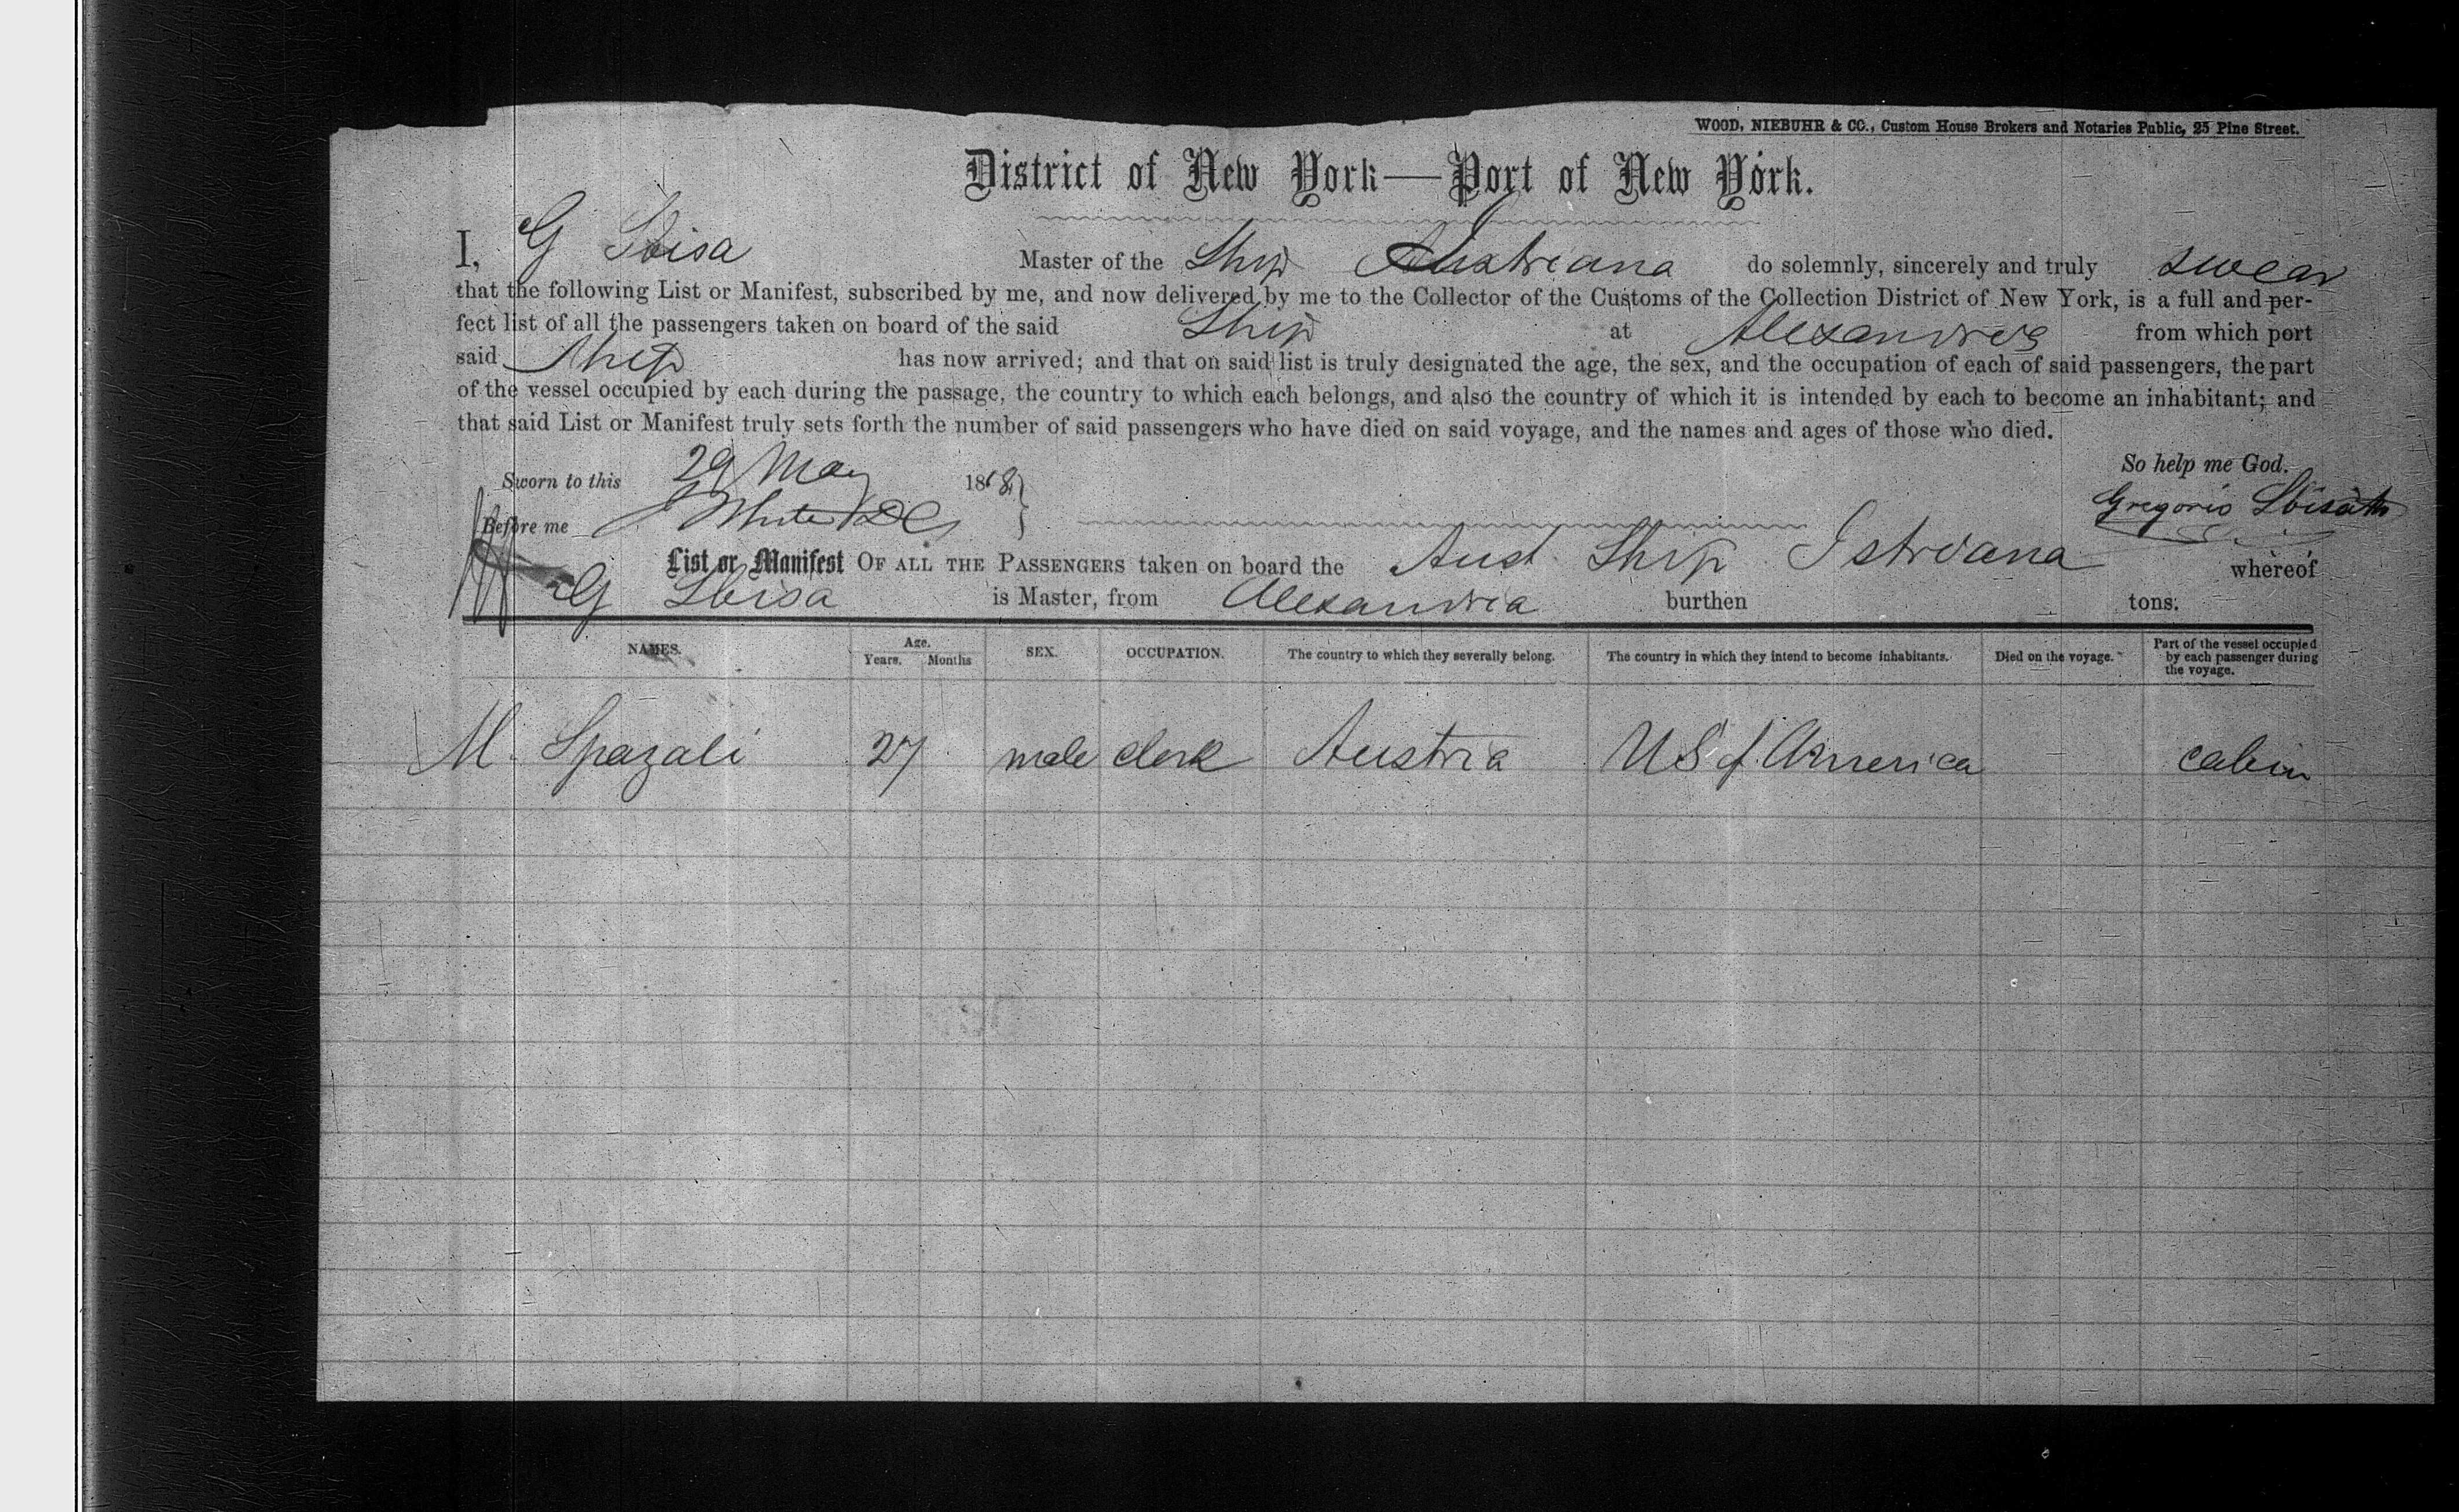 WOOD, NIEBUHR & CO., Custom House Brokers and Notaries Public, 25 Pine Street.
District of New York—Port of New York.
I, G Sbisa Master of the Ship do solemnly, sincerely and truly swear
that the following List or Manifest, subscribed by me, and now delivered by me to the Collector of the Customs of the Collection District of New York, is a full and per-
fect list of all the passengers taken on board of the said Ship at Alexandria from which port
said Ship has now arrived; and that on said list is truly designated the age, the sex, and the occupation of each of said passengers, the part
of the vessel occupied by each during the passage, the country to which each belongs, and also the country of which it is intended by each to become an inhabitant; and
that said List or Manifest truly sets forth the number of said passengers who have died on said voyage, and the names and ages of those who died.
So help me God.
Sworn to this 29 May 1868
Gregorio
Before me J White
List or Manifest OF ALL THE PASSENGERS taken on board the Aust Ship Istriana whereof
G Sbisa is Master, from Alexandria burthen tons.
NAMES. Age. Years. Months SEX. OCCUPATION. The country to which they severally belong. The country in which they intend to become inhabitants. Died on the voyage. Part of the vessel occupied by each passenger during the voyage.
M. Spazali 27 male clerk Austria US of America cabin